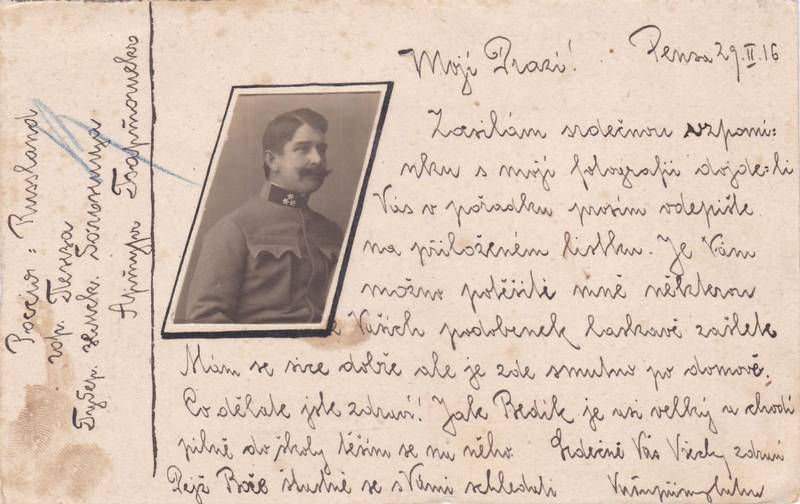 Россия: Russland
гор. Пенза
Губер. земск. больница
Артур
Penza 29.II.16
Moji Drazí!
Zasílám srdečnou vzpomí=
nku s mojí fotografií dojde-li
Vás v pořádku prosím odepište
na přiloženém lístku. Je Vám
možno potěšite mně některou
z Vašich podobenek laskavě zašlete
Mám se sice dobře ale je zde smutno po domově.
Co děláte jste zdraví! Jak Bedík je asi velký a chodí
pilně do školy těším se na něho. Srdečně Vás Všechny zdraví
Dejž Bože šťastně se s Vámi schledati